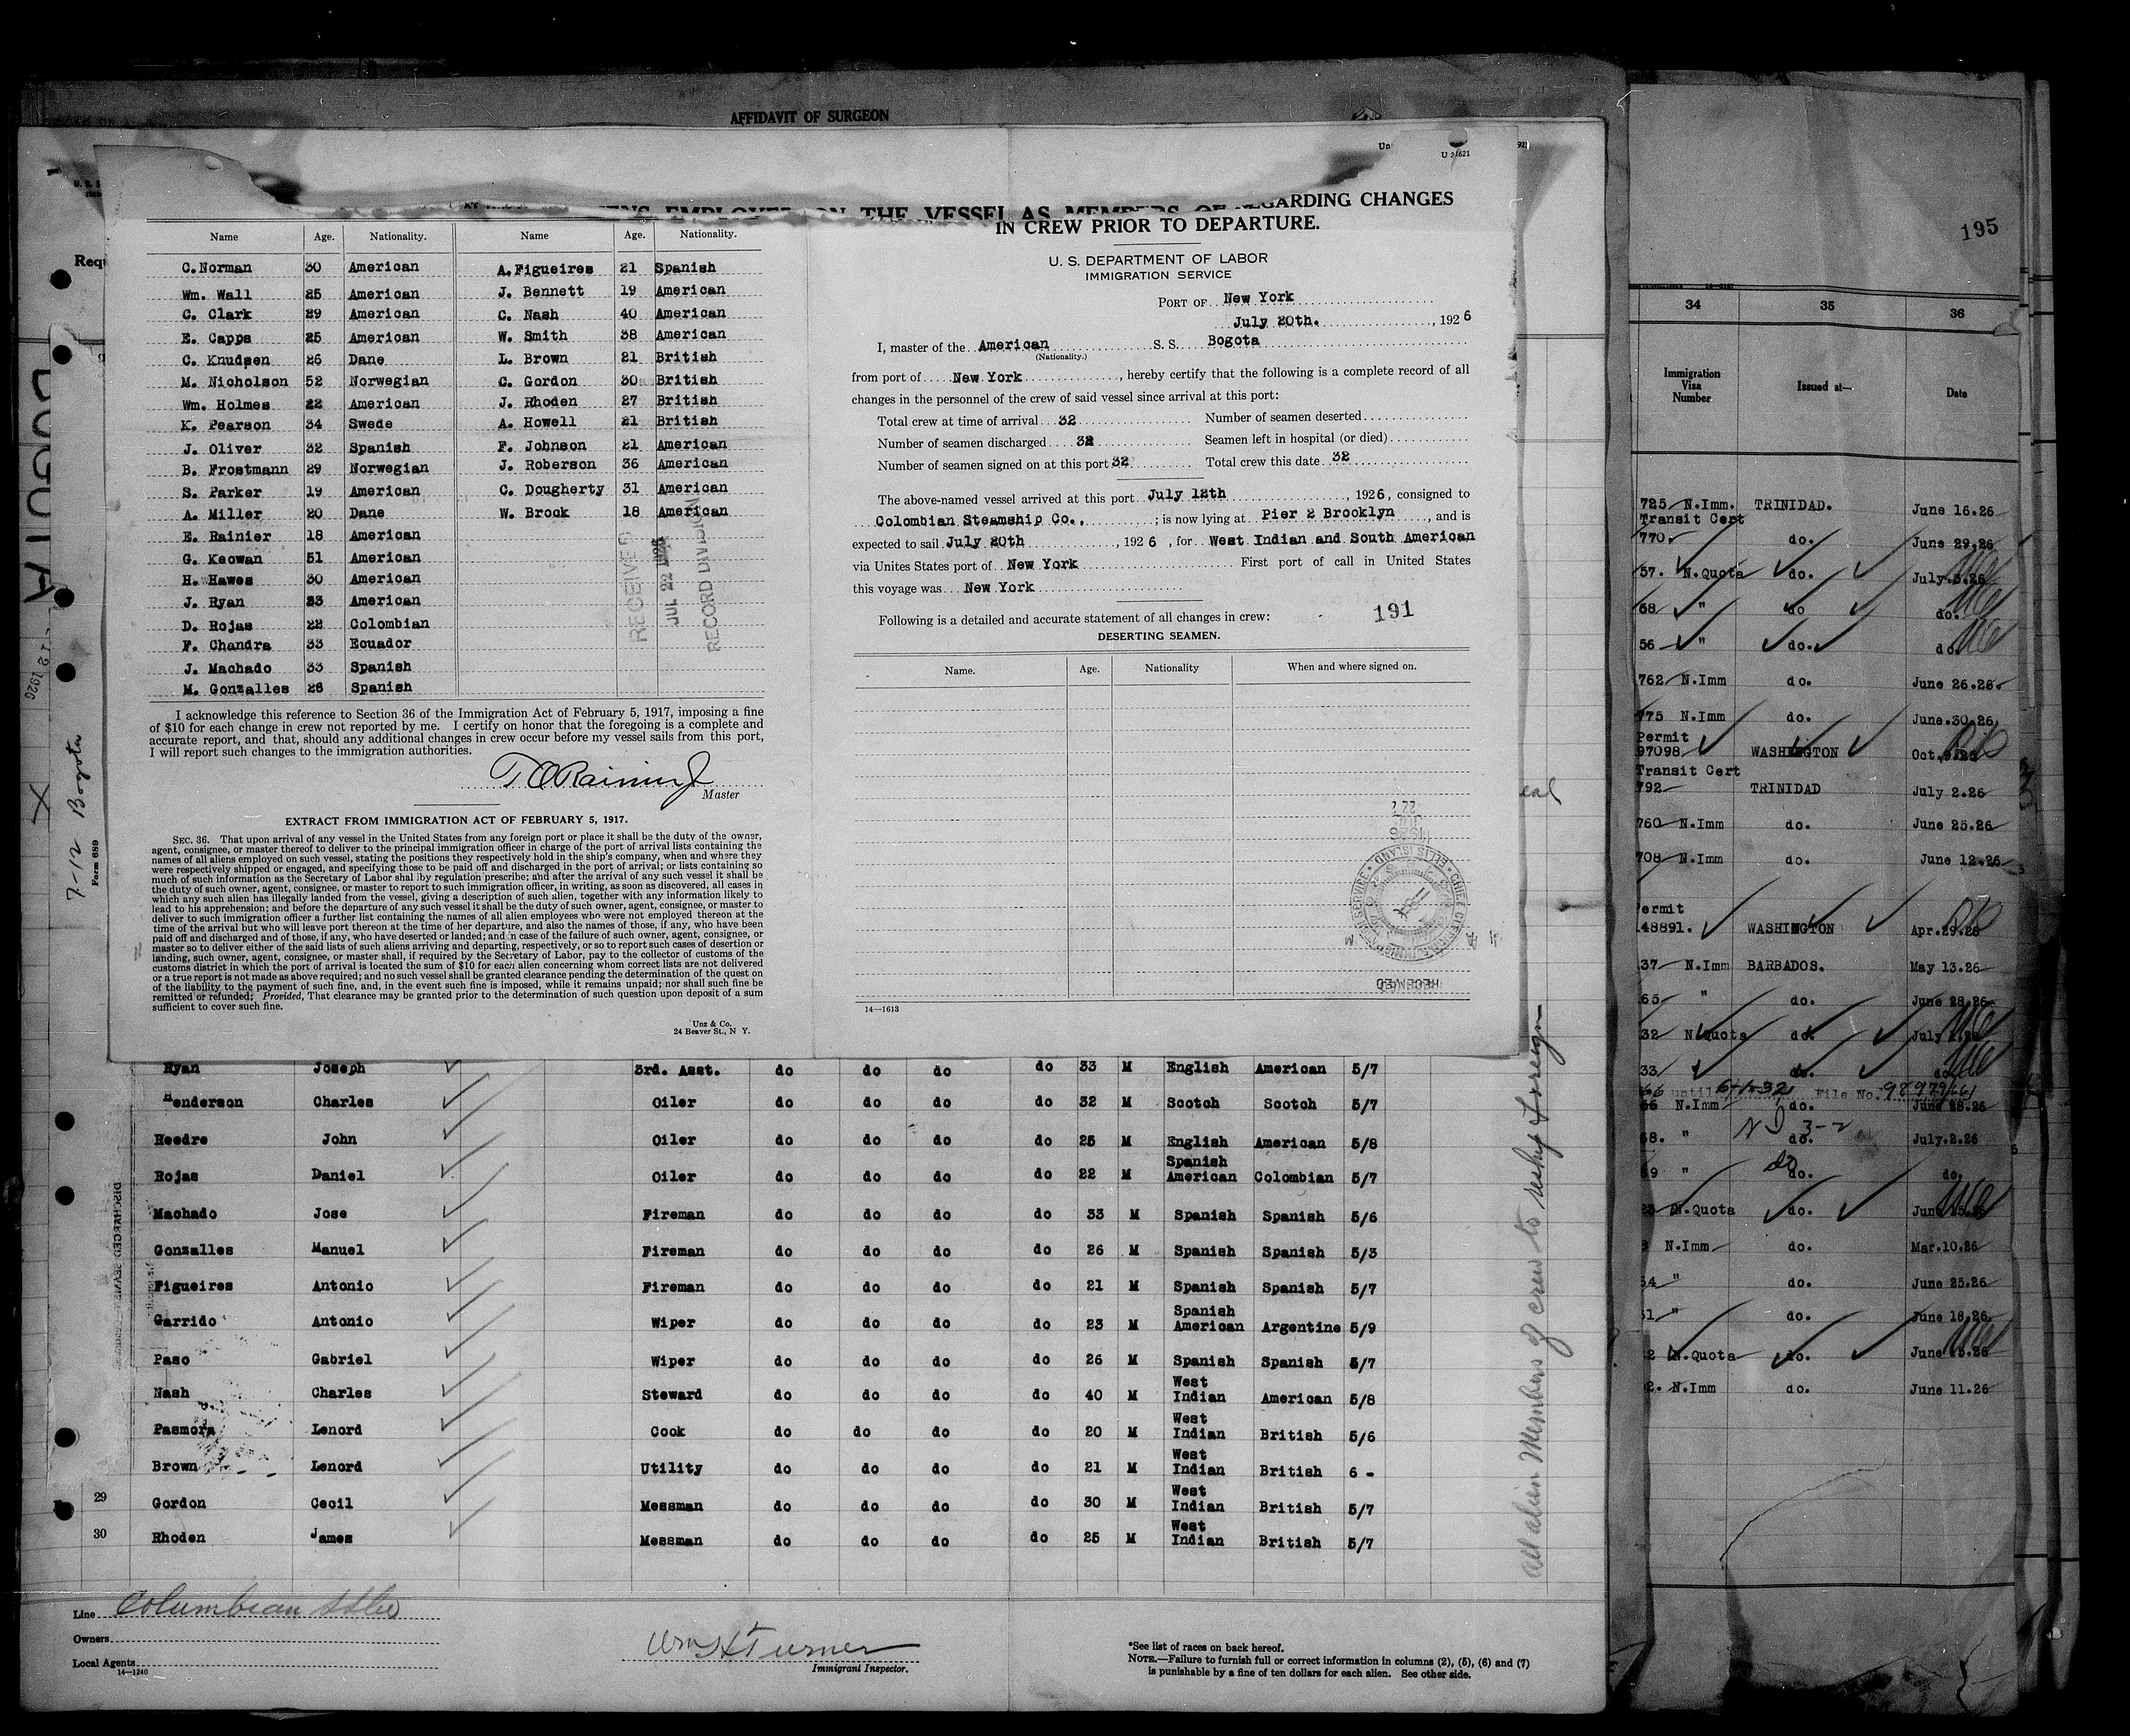 AFFIDAVIT OF SURGEON
U 21621
195
THE VESSEL AS MEMBERS OF
GARDING CHANGES
IN CREW PRIOR TO DEPARTURE.
Name Age. Nationality. Name Age. Nationality.
C. Norman 30 American A. Figueires 21 Spanish
Wm. Wall 25 American J. Bennett 19 American
C. Clark 29 American C. Nash 40 American
E. Capps 25 American W. Smith 38 American
C. Knudsen 26 Dane L. Brown 21 British
M. Nicholson 52 Norwegian C. Gordon 30 British
Wm. Holmes 22 American J. Rhoden 27 British
K. Pearson 34 Swede A. Howell 21 British
J. Oliver 32 Spanish F. Johnson 21 American
B. Frostmann 29 Norwegian J. Roberson 36 American
S. Parker 19 American C. Dougherty 31 American
A. Miller 20 Dane W. Brock 18 American
E. Rainier 18 American
G. Keowan 51 American
H. Hawes 30 American
J. Ryan 33 American
D. Rojas 22 Colombian
F. Chandra 33 Ecuador
J. Machado 33 Spanish
M. Gonzalles 26 Spanish
RECEIVED
JUL 22 1926
RECORD DIVISION
I acknowledge this reference to Section 36 of the Immigration Act of February 5, 1917, imposing a fine
of $10 for each change in crew not reported by me. I certify on honor that the foregoing is a complete and
accurate report, and that, should any additional changes in crew occur before my vessel sails from this port,
I will report such changes to the immigration authorities.
Master
EXTRACT FROM IMMIGRATION ACT OF FEBRUARY 5, 1917.
SEC. 36. That upon arrival of any vessel in the United States from any foreign port or place it shall be the duty of the owner,
agent, consignee, or master thereof to deliver to the principal immigration officer in charge of the port of arrival lists containing the
names of all aliens employed on such vessel, stating the positions they respectively hold in the ship's company, when and where they
were respectively shipped or engaged, and specifying those to be paid off and discharged in the port of arrival; or lists containing so
much of such information as the Secretary of Labor shal lby regulation prescribe; and after the arrival of any such vessel it shall be
the duty of such owner, agent, consignee, or master to report to such immigration officer, in writing, as soon as discovered, all cases in
which any such alien has illegally landed from the vessel, giving a description of such alien, together with any information likely to
lead to his apprehension; and before the departure of any such vessel it shall be the duty of such owner, agent, consignee, or master to
deliver to such immigration officer a further list containing the names of all alien employees who were not employed thereon at the
time of the arrival but who will leave port thereon at the time of her departure, and also the names of those, if any, who have been
paid off and discharged and of those, if any, who have deserted or landed; and in case of the failure of such owner, agent, consignee, or
master so to deliver either of the said lists of such aliens arriving and departing, respectively, or so to report such cases of desertion or
landing, such owner, agent, consignee, or master shall, if required by the Secretary of Labor, pay to the collector of customs of the
customs district in which the port of arrival is located the sum of $10 for each alien concerning whom correct lists are not delivered
or a true report is not made as above required; and no such vessel shall be granted clearance pending the determination of the quest on
of the liability to the payment of such fine, and, in the event such fine is imposed, while it remains unpaid; nor shall such fine be
remitted or refunded; Provided, That clearance may be granted prior to the determination of such question upon deposit of a sum
sufficient to cover such fine.
Unz & Co.
24 Beaver St., N Y.
U. S. DEPARTMENT OF LABOR
IMMIGRATION SERVICE
PORT OF New York
July 20th., 1926
I, master of the American S. S. Bogota
(Nationality.)
from port of New York, hereby certify that the following is a complete record of all
changes in the personnel of the crew of said vessel since arrival at this port:
Total crew at time of arrival 32 Number of seamen deserted
Number of seamen discharged 32 Seamen left in hospital (or died)
Number of seamen signed on at this port 32 Total crew this date 32
The above-named vessel arrived at this port July 12th, 1926, consigned to
Colombian Steamship Co., ; is now lying at Pier 2 Brooklyn, and is
expected to sail July 20th, 1926, for West Indian and South American
via Unites States port of New York First port of call in United States
this voyage was New York
Following is a detailed and accurate statement of all changes in crew: 191
DESERTING SEAMEN.
Name. Age. Nationality When and where signed on.
RECEIVED
14—1613
7-12 Bogota
Form 689
Ryan Joseph 3rd. Asst. do do do do 33 M English American 5/7
Henderson Charles Oiler do do do do 32 M Scotch Scotch 5/7
Heedre John Oiler do do do do 25 M English American 5/8
Rojas Daniel Oiler do do do do 22 M Spanish American Colombian 5/7
Machado Jose Fireman do do do do 33 M Spanish Spanish 5/6
Gonzalles Manuel Fireman do do do do 26 M Spanish Spanish 5/3
Figueires Antonio Fireman do do do do 21 M Spanish Spanish 5/7
Garrido Antonio Wiper do do do do 23 M Spanish American Argentine 5/9
Paso Gabriel Wiper do do do do 26 M Spanish Spanish 5/7
Nash Charles Steward do do do do 40 M West Indian American 5/8
Pasmora Lenord Cook do do do do 20 M West Indian British 5/6
Brown Lenord Utility do do do do 21 M West Indian British 6 -
29 Gordon Cecil Messman do do do do 30 M West Indian British 5/7
30 Rhoden James Messman do do do do 25 M West Indian British 5/7
All alien Members of crew to reship foreign
Line Columbian
Owners
Local Agents
14—1240
Wm H Turner
Immigrant Inspector.
*See list of races on back hereof.
NOTE.—Failure to furnish full or correct information in columns (2), (5), (6) and (7)
is punishable by a fine of ten dollars for each alien. See other side.
34 35 36
Immigration Visa Number Issued at— Date
725 N.Imm. TRINIDAD. June 16.26
Transit Cert
770. do. June 29.26
57. N.Quota do. July.3.26
68 " do do.
56 " do. do.
762 N.Imm do. June 26.26.
775 N.Imm do. June.30.26
Permit
97098 WASHINGTON
Transit Cert
792 TRINIDAD July 2.26
760 N.Imm do. June 25.26
708 N.Imm do. June 12.26
ermit
48891. WASHINGTON Apr.29.26
37 N.Imm BARBADOS. May 13.26
65 " do. June 28.26
32 N.Quota do.
33 do.
File No.
N.Imm do. June 28.26
68. " do. July.2.26
69 " do. do.
N.Quota do.
N.Imm do. Mar.10.26
54 " do. June 25.26
" do. June 18.26
N.Quota do.
N.Imm do. June 11.26